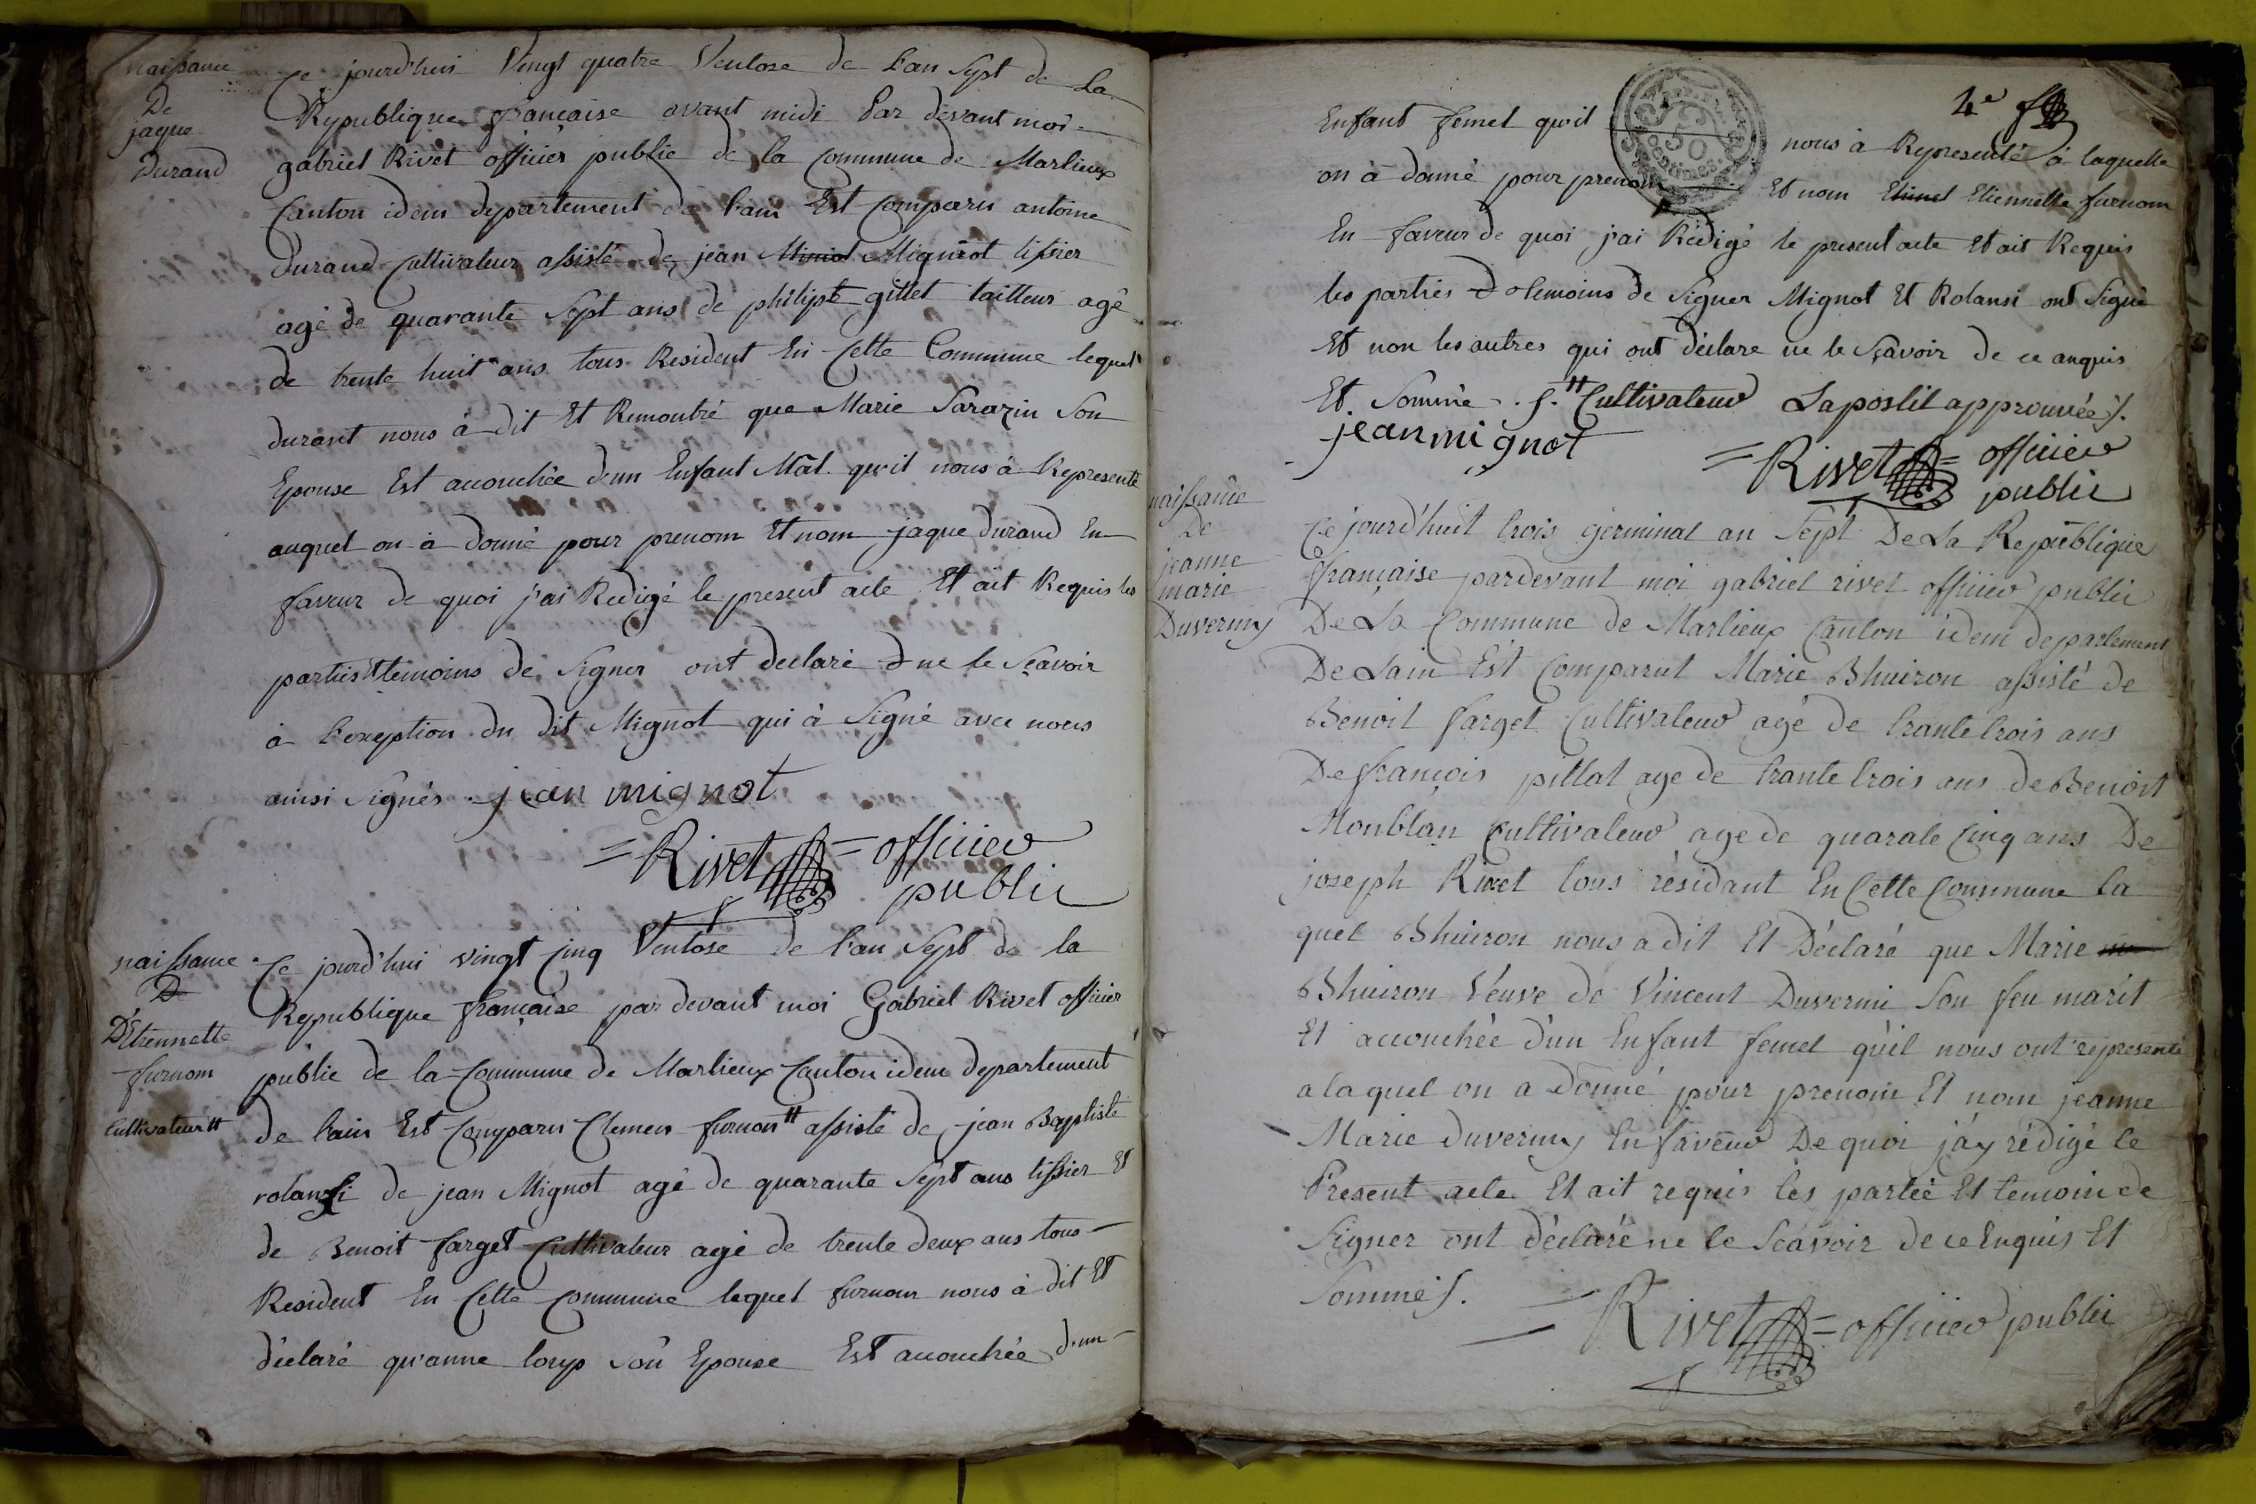 naissance
De
jaque
Durand
Ce jourd'hui Vingt quatre Ventose de l'an Sept de La
Republique française avant midi Par devant moi
gabriel Rivet officier public de la Commune de Marlieux
Canton idem departement de l'ain Est Comparu antoine
durand Cultivateur assisté de jean Mignot tissier
agé de quarante Sept ans de philipe gillet tailleur agé
de trente huit ans tous Resident En Cette Commune lequel
durant nous à dit Et Remontré que Marie Sarazin Son
Epouse Est acouchée d'un Enfant Mâl qu'il nous à Represente
auquel on à donné pour prenom Et nom jaque durand En
faveur de quoi j'ai Redigé le present acte Et ait Requis les
parties Et temoins de Signer ont declaré ne le Sçavoir
à l'exeption du dit Mignot qui à Signé avec nous
ainsi Signés jean mignot
= Rivet = officier
public
naissance
D
D'Etiennette
furnom
Cultivateur #
Ce jourd'hui vingt Cinq Ventose de l'an Sept de la
Republique française par devant moi Gabriel Rivet officier
public de la Commune de Marlieux Canton idem departement
de l'ain Est Comparu Clemen furnon # assisté de jean Baptiste
rolansi de jean Mignot agé de quarante Sept ans tissier Et
de Benoit farget Cultivateur agé de trente deux ans tous
Resident En Cette Commune lequel furnom nous à dit Et
déclaré qu'anne loup Son Epouse Est acouchée d'un
4e
Enfant femel qu'il nous à Representé à laquelle
on à donné pour prenom Et nom Etiennette furnom
En faveur de quoi j'ai Rédigé le present acte Et ait Requis
les parties temoins de Signer Mignot Et Rolansi ont Signé
Et non les autres qui ont déclare ne le Sçavoir de ce anquis
Et Sommé . f. # Cultivateur Lapostil approuvée /.
jean mignot
= Rivet = officier
public
50
Centimes
naissance
De
jeanne
marie
Duverny
Ce jourd'huit trois germinal an Sept De La Republique
française pardevant moi gabriel rivet officier public
De La Commune de Marlieux Canton idem departement
De Lain Est Comparut Marie Bhuiron assisté de
Benoit farget Cultivateur agé de trante trois ans
De françois pillat age de trante trois ans de Benoit
Monblan Cultivateur age de quarate Cinq ans De
joseph Rivet tous résidant En Cette Commune la
quel Bhuiron nous a dit Et Déclaré que Marie
Bhuiron Veuve de Vincent Duverni Son feu marit
Et acouchée d'un Enfant femel quil nous ont representé
a laquel on a donné pour prenom Et nom jeanne
Marie duverny En faveur De quoi j'ay rédigé le
Present acte Et ait requis les partié Et temoin de
Signer ont déclaré ne le Scavoir de ce Enquis Et
Sommé f.
= Rivet = officier public